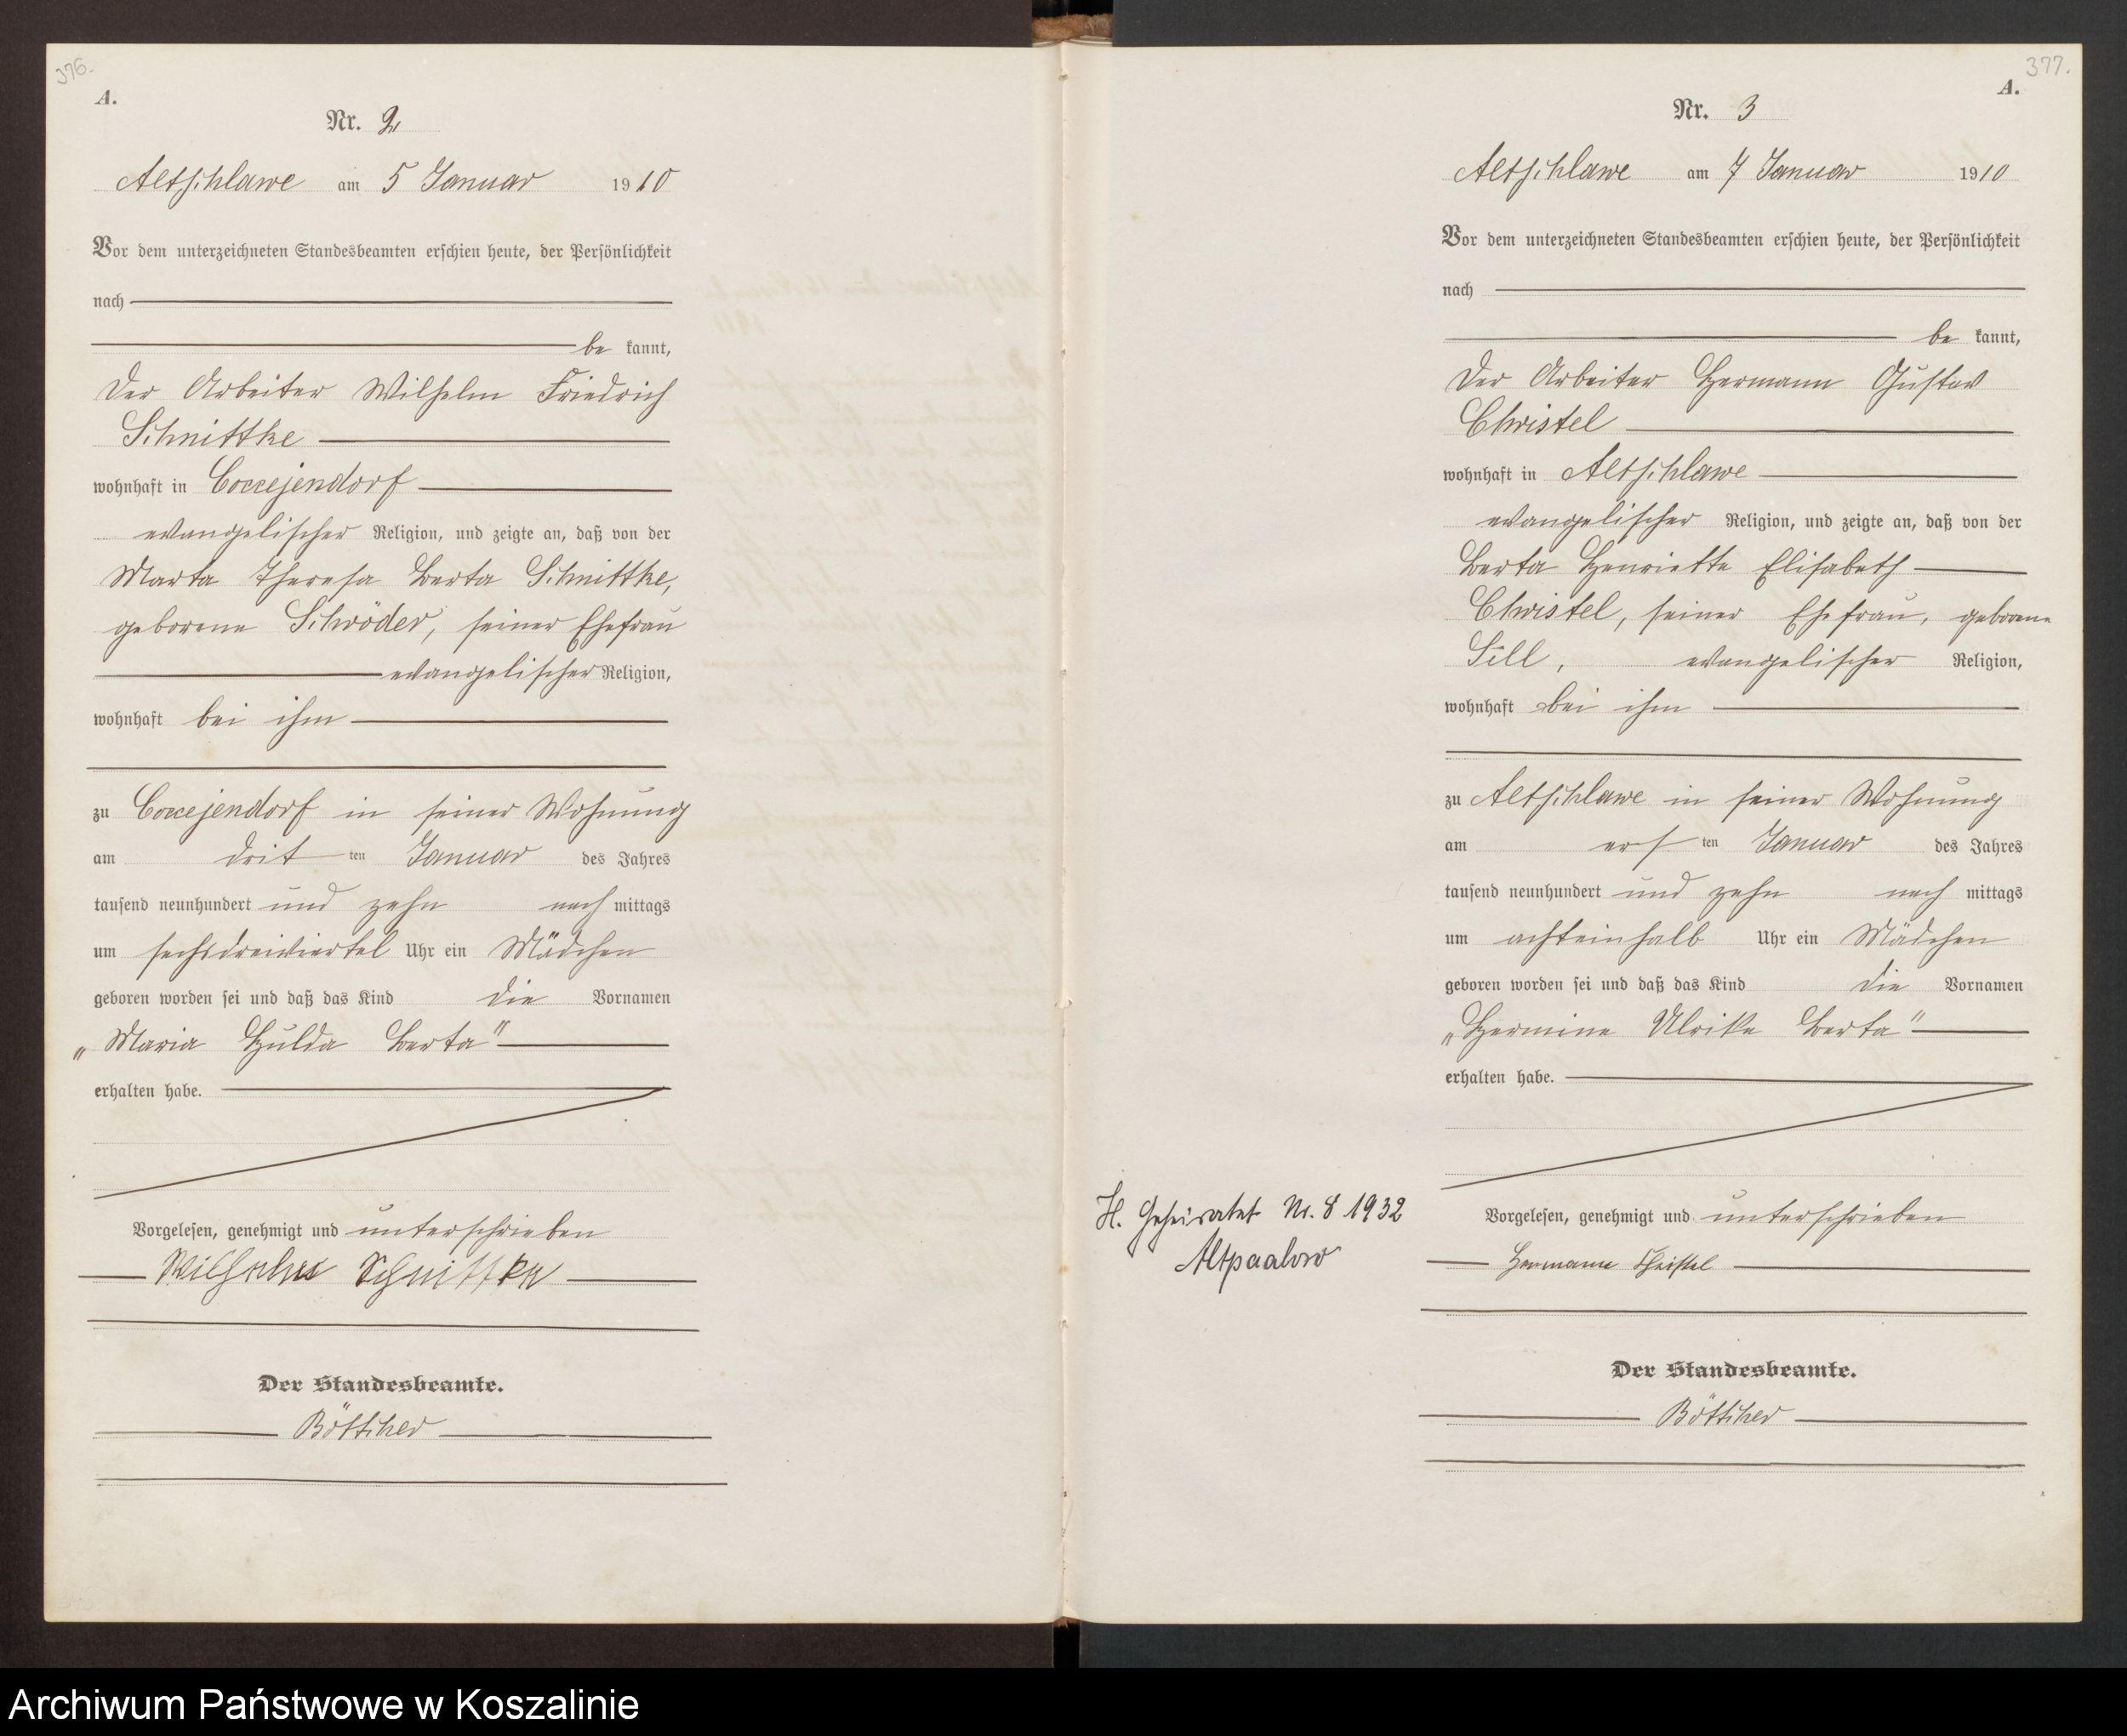 376.
A.
Nr. 2
Altschlawe am 5 Januar 1910
Vor dem unterzeichneten Standesbeamten erschien heute, der Persönlichkeit
nach
be kannt,
der Arbeiter Wilhelm Friedrich
Schnittke
wohnhaft in Coccejendorf
evangelischer Religion, und zeigte an, daß von der
Marta Theresa Berta Schnittke,
geborene Schröder, seiner Ehefrau
evangelischer Religion,
wohnhaft bei ihm
zu Coccejendorf in seiner Wohnung
am drit ten Januar des Jahres
tausend neunhundert und zehn nach mittags
um sechsdreiviertel Uhr ein Mädchen
geboren worden sei und daß das Kind die Vornamen
„Maria Hulda Berta"
erhalten habe.
Vorgelesen, genehmigt und unterschrieben
Wilhelm Schnittke
Der Standesbeamte.
Böttcher
377.
A.
Nr. 3
Altschlawe am 7 Januar 1910
Vor dem unterzeichneten Standesbeamten erschien heute, der Persönlichkeit
nach
be kannt,
der Arbeiter Hermann Gustav
Christel
wohnhaft in Altschlawe
evangelischer Religion, und zeigte an, daß von der
Berta Henriette Elisabeth
Christel, seiner Ehefrau, geborene
Sill, evangelischer Religion,
wohnhaft bei ihm
zu Altschlawe in seiner Wohnung
am ers ten Januar des Jahres
tausend neunhundert und zehn nach mittags
um achteinhalb Uhr ein Mädchen
geboren worden sei und daß das Kind die Vornamen
„Hermine Ulrike Berta"
erhalten habe.
H. Geheiratet Nr. 8 1932
Altpaalow
Vorgelesen, genehmigt und unterschrieben
Hermann Christel
Der Standesbeamte.
Böttcher
Archiwum Państwowe w Koszalinie